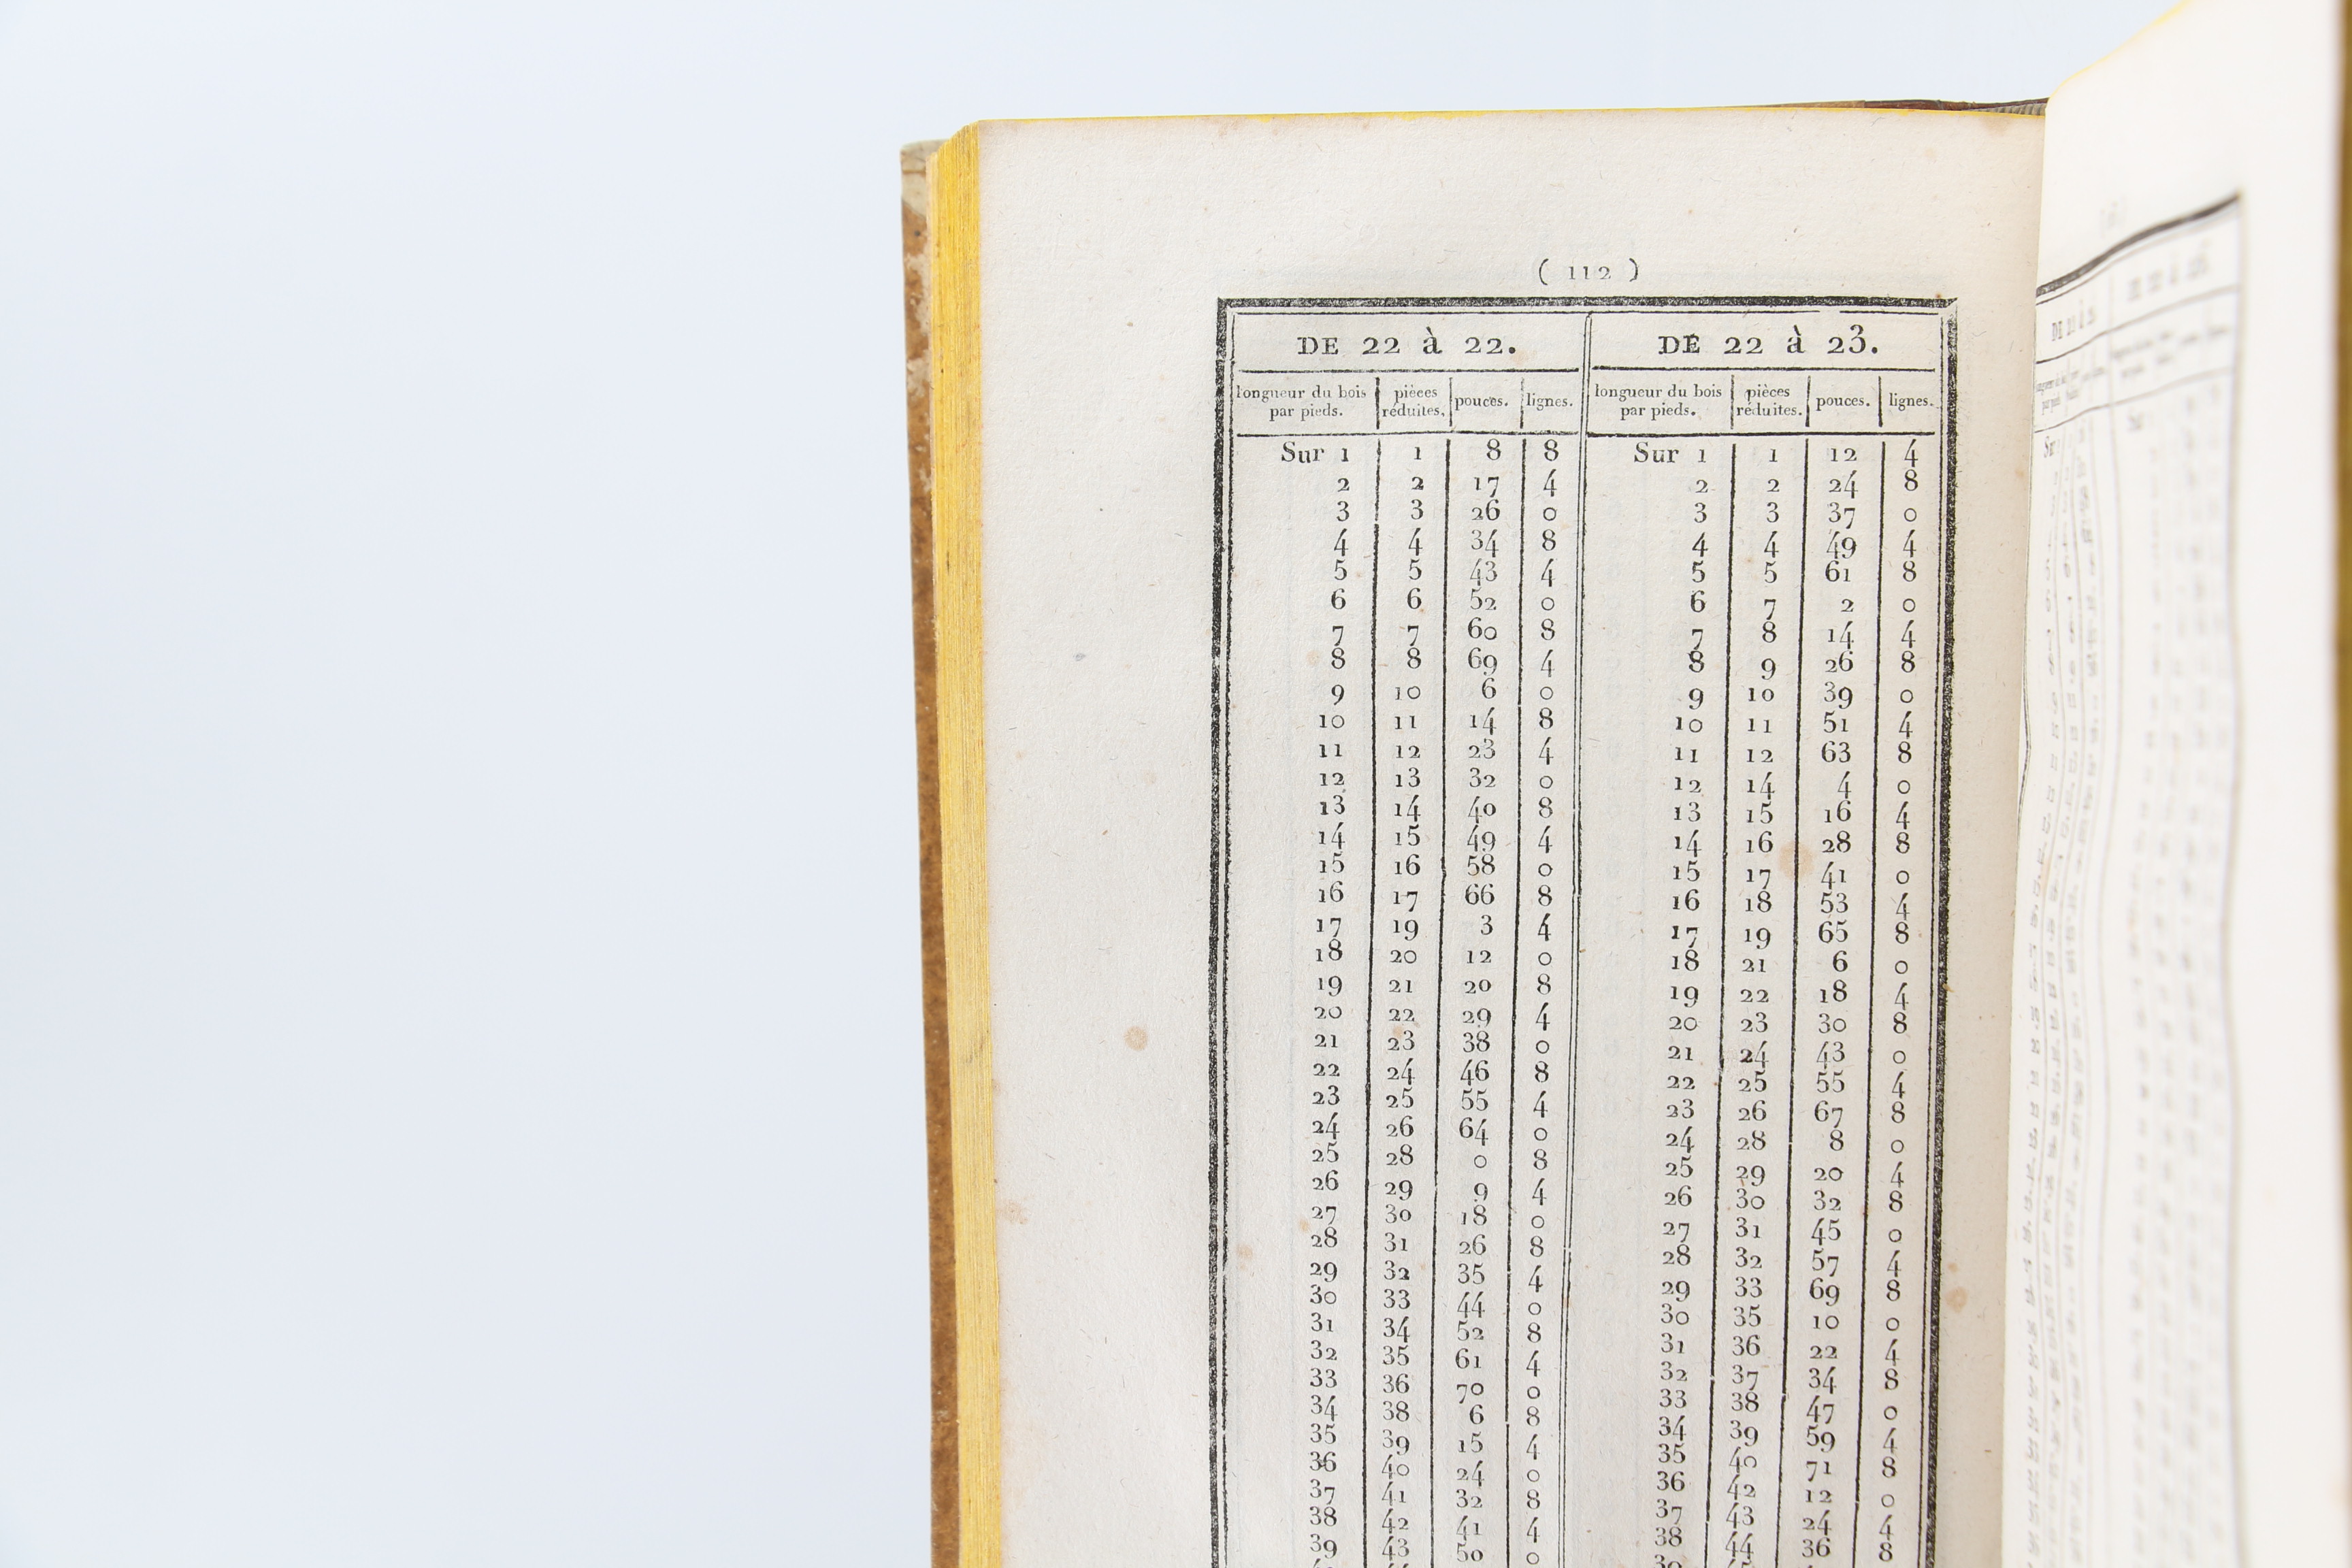 ( 112 )
DE 22 à 22. DE 22 à 23.
longueur du bois par pieds. pièces réduites. pouces. lignes. longueur du bois par pieds. pièces réduites. pouces. lignes.
Sur 1 1 8 8 Sur 1 1 12 4
2 2 17 4 2 2 24 8
3 3 26 0 3 3 37 0
4 4 34 8 4 4 49 4
5 5 43 4 5 5 61 8
6 6 52 0 6 7 2 0
7 7 60 8 7 8 14 4
8 8 69 4 8 9 26 8
9 10 6 0 9 10 39 0
10 11 14 8 10 11 51 4
11 12 23 4 11 12 63 8
12 13 32 0 12 14 4 0
13 14 40 8 13 15 16 4
14 15 49 4 14 16 28 8
15 16 58 0 15 17 41 0
16 17 66 8 16 18 53 4
17 19 3 4 17 19 65 8
18 20 12 0 18 21 6 0
19 21 20 8 19 22 18 4
20 22 29 4 20 23 30 8
21 23 38 0 21 24 43 0
22 24 46 8 22 25 55 4
23 25 55 4 23 26 67 8
24 26 64 0 24 28 8 0
25 28 0 8 25 29 20 4
26 29 9 4 26 30 32 8
27 30 18 0 27 31 45 0
28 31 26 8 28 32 57 4
29 32 35 4 29 33 69 8
30 33 44 0 30 35 10 0
31 34 52 8 31 36 22 4
32 35 61 4 32 37 34 8
33 36 70 0 33 38 47 0
34 38 6 8 34 39 59 4
35 39 15 4 35 40 71 8
36 40 24 0 36 42 12 0
37 41 32 8 37 43 24 4
38 42 41 4 38 44 36 8
39 43 50 0